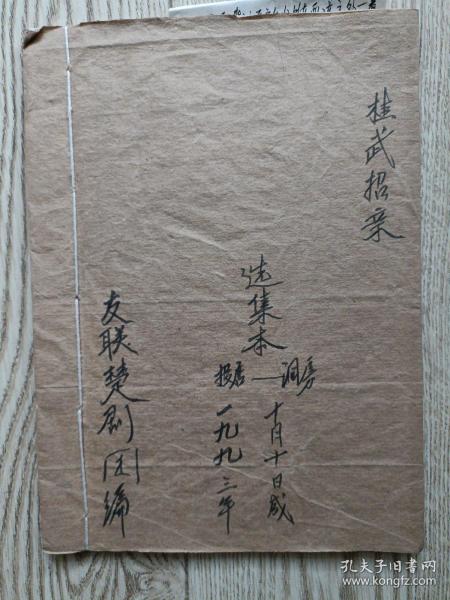 桂武招亲
选集本
投店——洞房
十月十日成
一九九三年
友联楚剧团编
孔夫子旧书网
www.kongfz.com